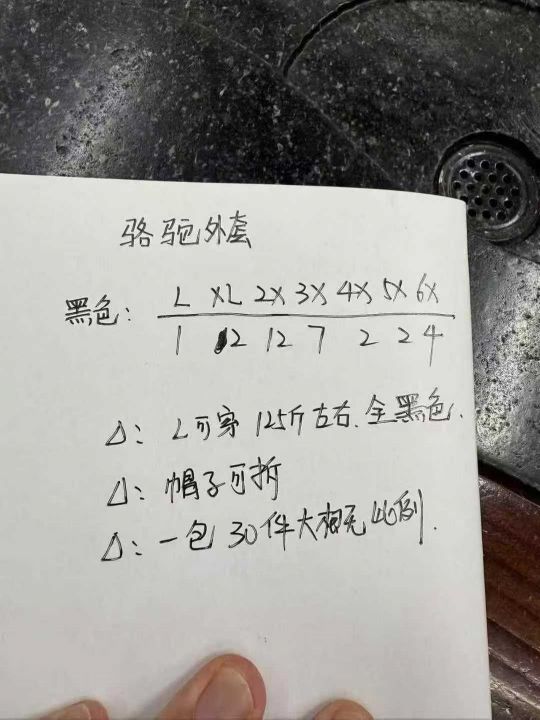 骆驼外套
黑色: L XL 2X 3X 4X 5X 6X
1 2 12 7 2 2 4
△: L可穿 125斤左右. 全黑色.
△: 帽子可拆
△: 一包 30件大概比例.